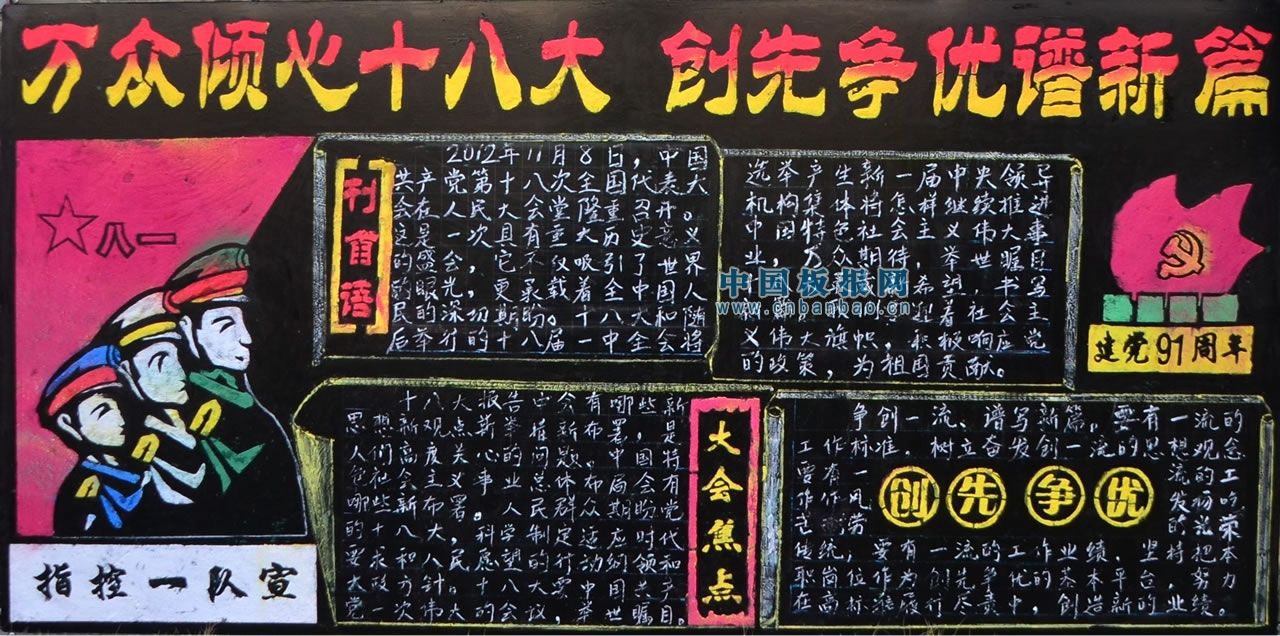 万众倾心十八大 创先争优谱新篇
八一
刊首语
2012年11月8日，中国
共产党第十八次全国代表大
会在人民大会堂隆重召开。
这是一次具有重大历史意义
的盛会，它不仅吸引了全世界
的眼光，更承载着全中国人
民深切的期盼。十八大和随
后举行的十八届一中全会将
选举产生新一届中央领导
机构集体将怎样继续推进
中国特色社会主义伟大事
业，万众期待，举世瞩目
义伟大旗帜，积极响应党
的政策，为祖国贡献。
中国板报网
www.cnbanbao.cn
建党91周年
十八大报告中会有哪些新
思想新观点新举措新布署，是
人们高度关心的问题。国特
色社会主义事业总体布局会有
哪些新布署。人民群众期盼党
的十八大，科学制定适应时代
要求和人民愿望的行动纲领和
大政方针。十的
党一次伟大的会议，举世瞩目。
大会焦点
争创一流、谱写新篇，要有一流的
工作标准，树立奋发创一流的思想观念
创先争优
传统，要有一流的工作业绩，坚持把本
职岗位作为创先争优的基本平台，努力
在高标准履行尽责中，创造新的业绩。
指控一队宣